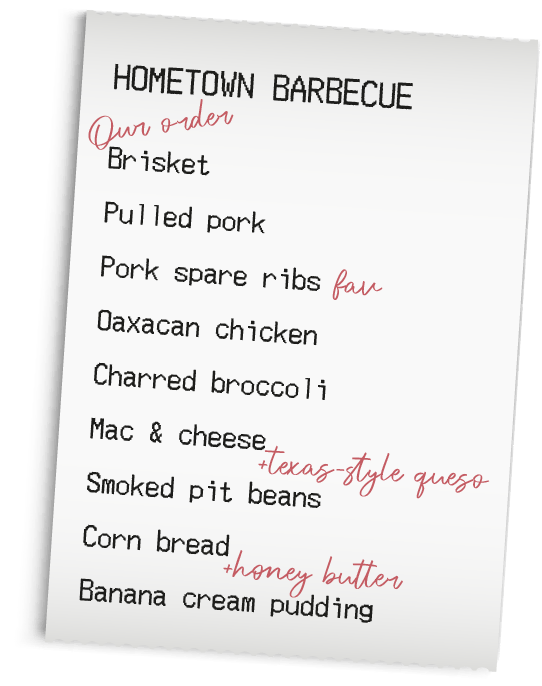 HOMETOWN BARBECUE
Our order
Brisket
Pulled pork
Pork spare ribs fav
Oaxacan chicken
Charred broccoli
Mac & cheese
+texas-style queso
Smoked pit beans
Corn bread
+honey butter
Banana cream pudding